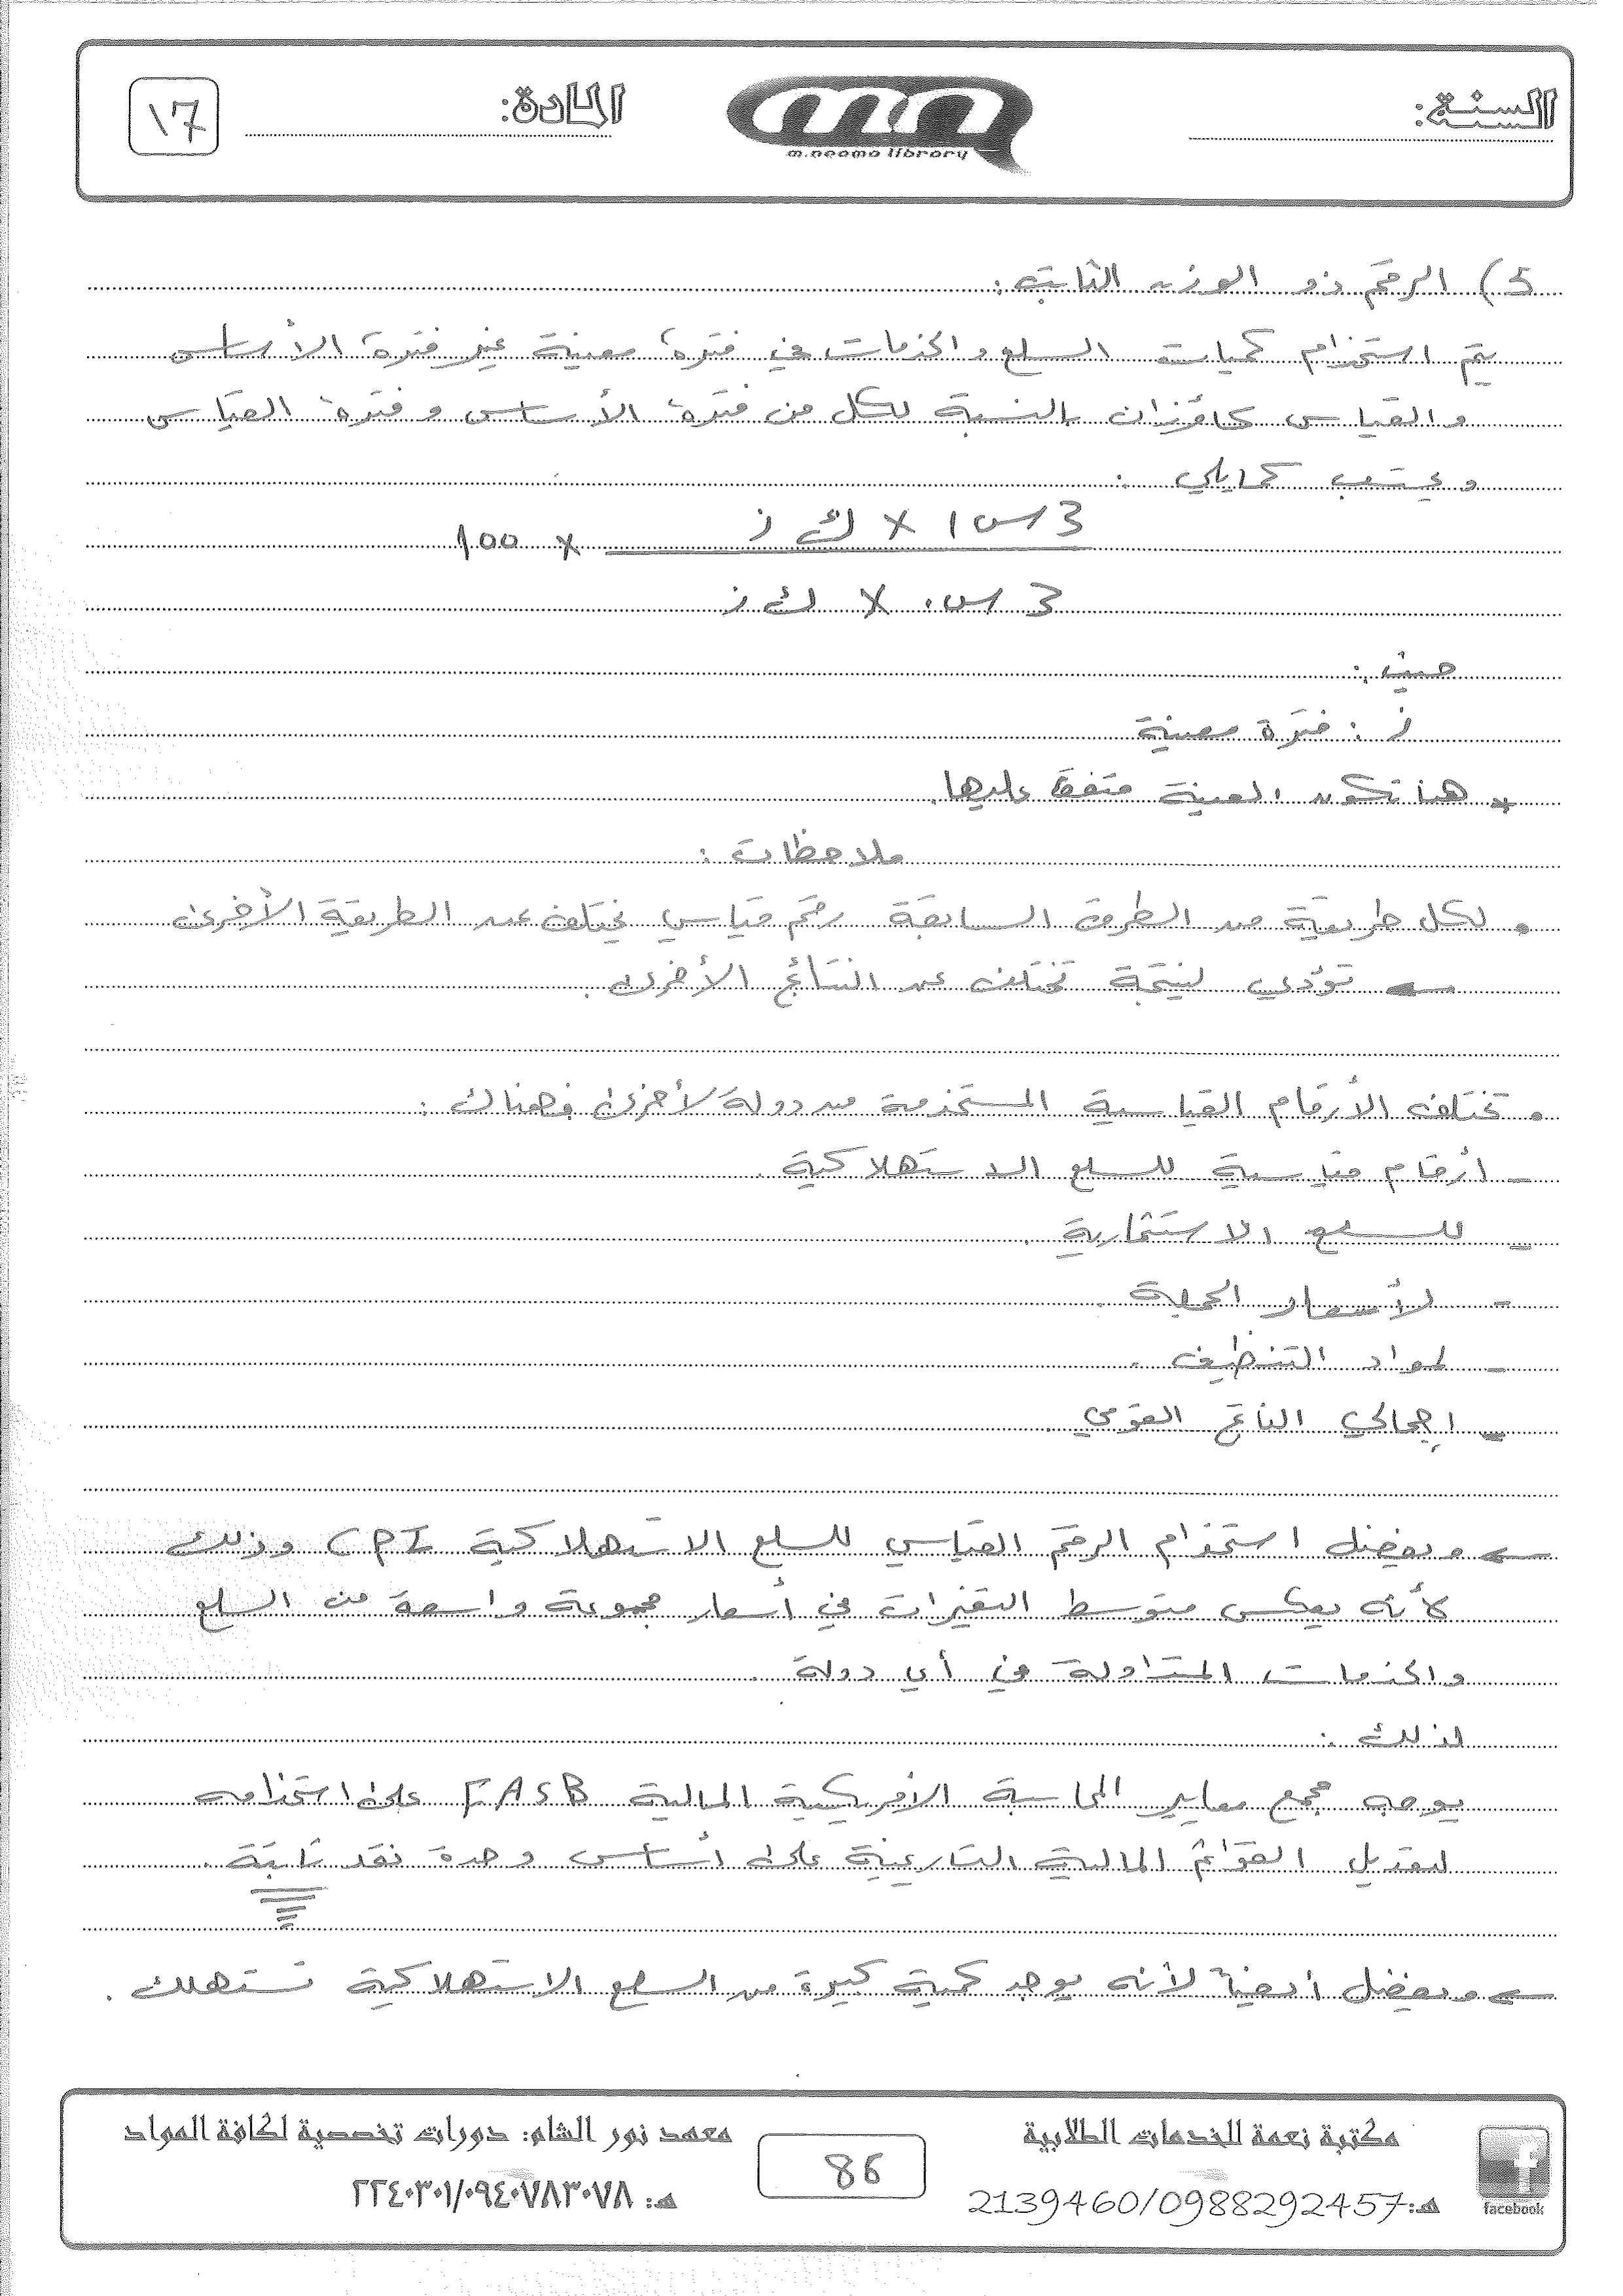 السنة:
m.neama library
المادة:
17
5) الرقم ذو الوزن الثابت:
يتم استخدام كميات السلع والخدمات في فترة معينة غير فترة الأساس
والقياس كأوزان بالنسبة لكل من فترة الأساس وفترة القياس
ويحسب كمايلي:
3 س1 × ك ز
× 100
3 س. × ك ز
حيث:
ز: فترة معينة
* هنا تكون العينة متفق عليها.
ملاحظات:
• لكل طريقة من الطرق السابقة رقم قياسي يختلف عن الطريقة الأخرى
← تؤدي لنتيجة تختلف عن النتائج الأخرى.
• تختلف الأرقام القياسية المستخدمة من دولة لأخرى فهناك:
- أرقام قياسية للسلع الاستهلاكية.
- للسلع الاستثمارية.
- لأسعار الجملة.
- لمواد التنظيف.
- إجمالي الناتج القومي.
← ويفضل استخدام الرقم القياسي للسلع الاستهلاكية CPI وذلك
لأنه يعكس متوسط التغيرات في أسعار مجموعة واسعة من السلع
والخدمات المتداولة في أي دولة.
لذلك:
يوجه مجمع معايير المحاسبة الأمريكية المالية FASB على استخدامه
لتعديل القوائم المالية التاريخية على أساس وحدة نقد ثابتة.
← ويفضل أيضاً لأنه يوجد كمية كبيرة من السلع الاستهلاكية تستهلك.
facebook
مكتبة نعمة للخدمات الطلابية
هـ: 2139460/0988292457
86
معهد نور الشام: دورات تخصصية لكافة المواد
هـ: ٢٢٤٠٣٠١/٠٩٤٠٧٨٣٠٧٨